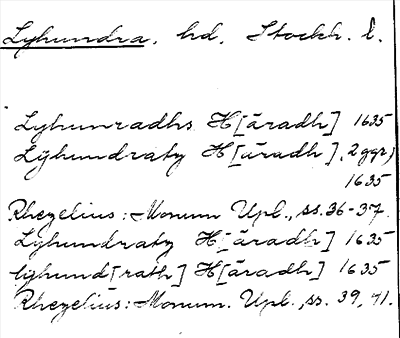 Lyhundra. hd. Stockh. l.
Lyhunradhs H[äradh] 1635
Lÿhundraty H[äradh], 2 ggr,
1635
Rhezelius: Monum Upl., ss. 36-37.
Lyhundraty H[äradh] 1635
lyhund[rath] H[äradh] 1635
Rhezelius: Monum. Upl., ss. 39, 41.